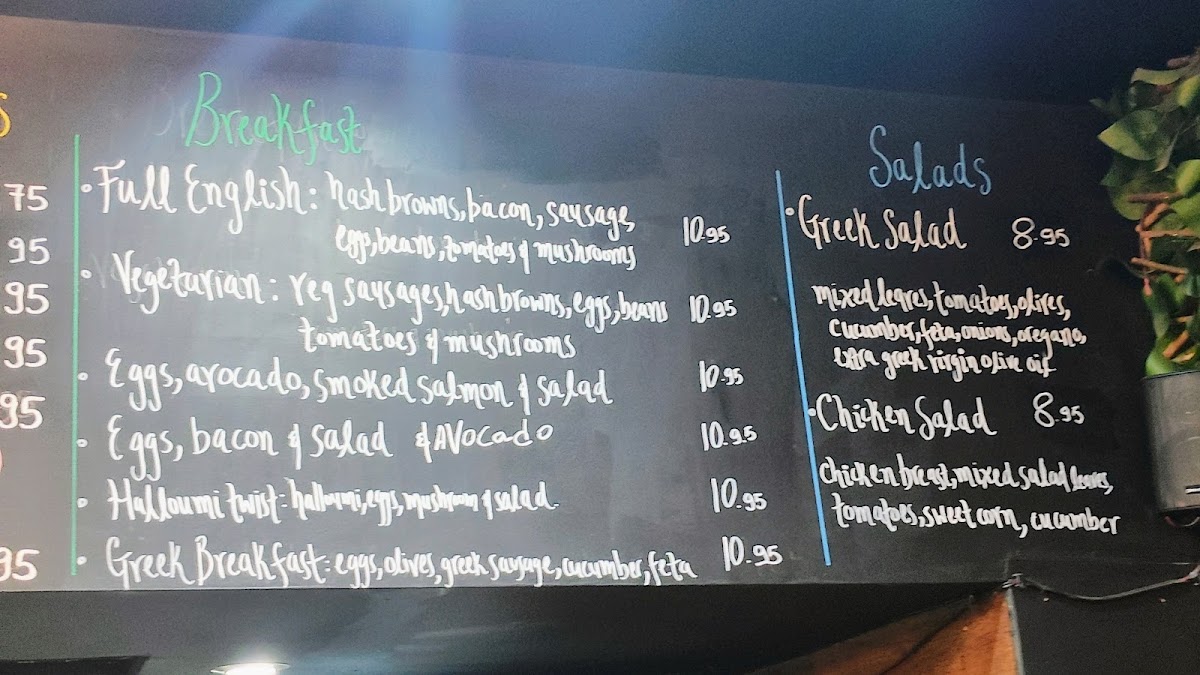 75
95
95
95
95
95
Breakfast
Full English: hash browns, bacon, sausage, 10.95
eggs, beans, tomatoes & mushrooms
Vegetarian: veg sausages, hash browns, eggs, beans 10.95
tomatoes & mushrooms
Eggs, avocado, smoked salmon & salad 10.95
Eggs, bacon & salad & AVocado 10.95
Halloumi twist: halloumi, eggs, mushroom & salad 10.95
Greek Breakfast: eggs, olives, greek sausage, cucumber, feta 10.95
Salads
Greek Salad 8.95
mixed leaves, tomatoes, olives,
cucumber, feta, onions, oregano,
extra greek virgin olive oil
Chicken Salad 8.95
chicken breast, mixed salad leaves,
tomatoes, sweet corn, cucumber